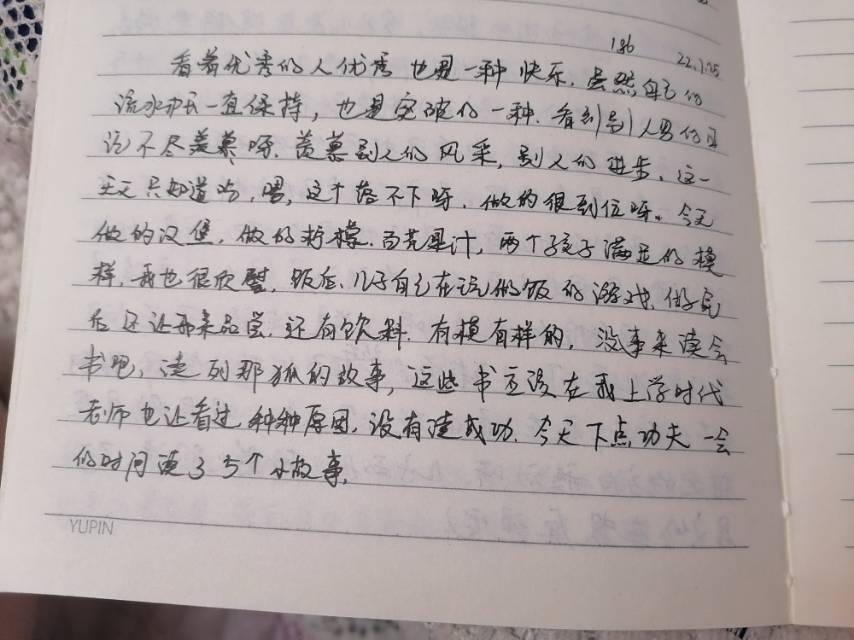 186 22.1.25
看着优秀的人优秀也是一种快乐.虽然自己的
流水账一直保持,也是突破的一种.看到别人男的日
记不尽羡慕呀.羡慕别人的风采,别人的进步.这一
天天只知道吃,喝,这个落不下呀.做的很到位呀。今天
做的汉堡.做的柠檬.百荒果汁,两个孩子满足的模
样,我也很欣慰.饭后.儿子自己在玩做饭的游戏.做完
后还让我来品尝.还有饮料.有模有样的,没事来读会
书吧,读列那狐的故事,这些书应该在我上学时代
老师也让看过,种种原因,没有读成功.今天下点功夫一会
的时间读了5个小故事.
YUPIN